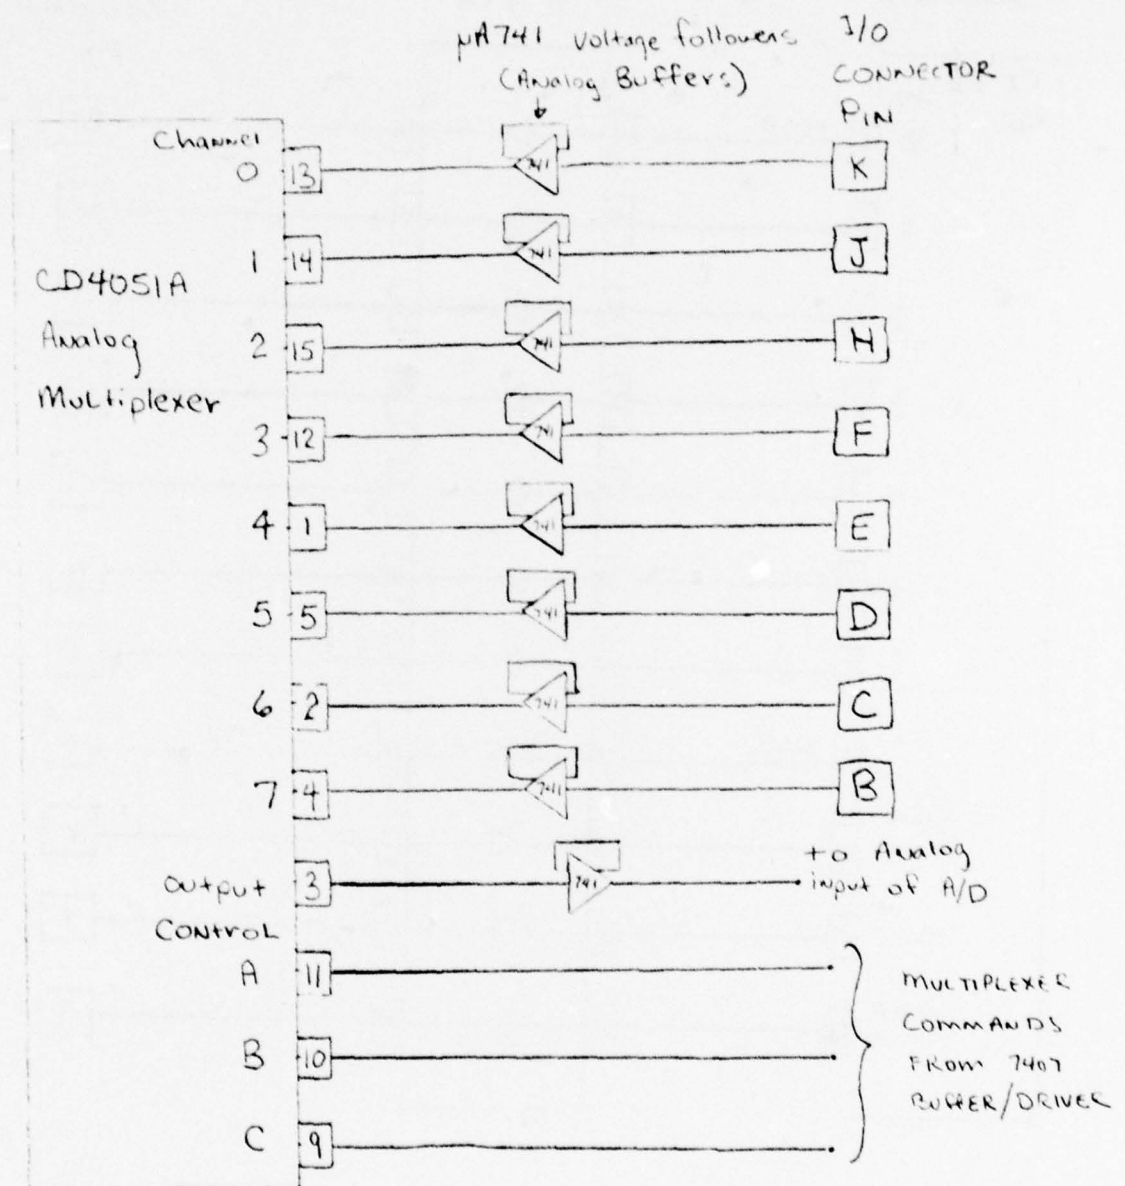 µA741 Voltage followers
(Analog Buffers)
I/O
CONNECTOR
PIN
Channel
0 13 741 K
1 14 741 J
CD4051A
Analog
Multiplexer
2 15 741 H
3 12 741 F
4 1 741 E
5 5 741 D
6 2 741 C
7 4 741 B
output 3 741 to Analog
input of A/D
CONTROL
A 11
B 10
C 9
MULTIPLEXER
COMMANDS
FROM 7407
BUFFER/DRIVER